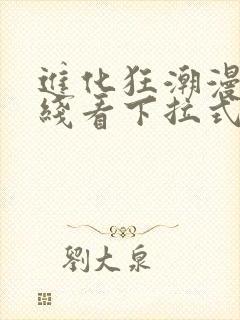 進化狂潮漫
綫看下拉式
劉大泉